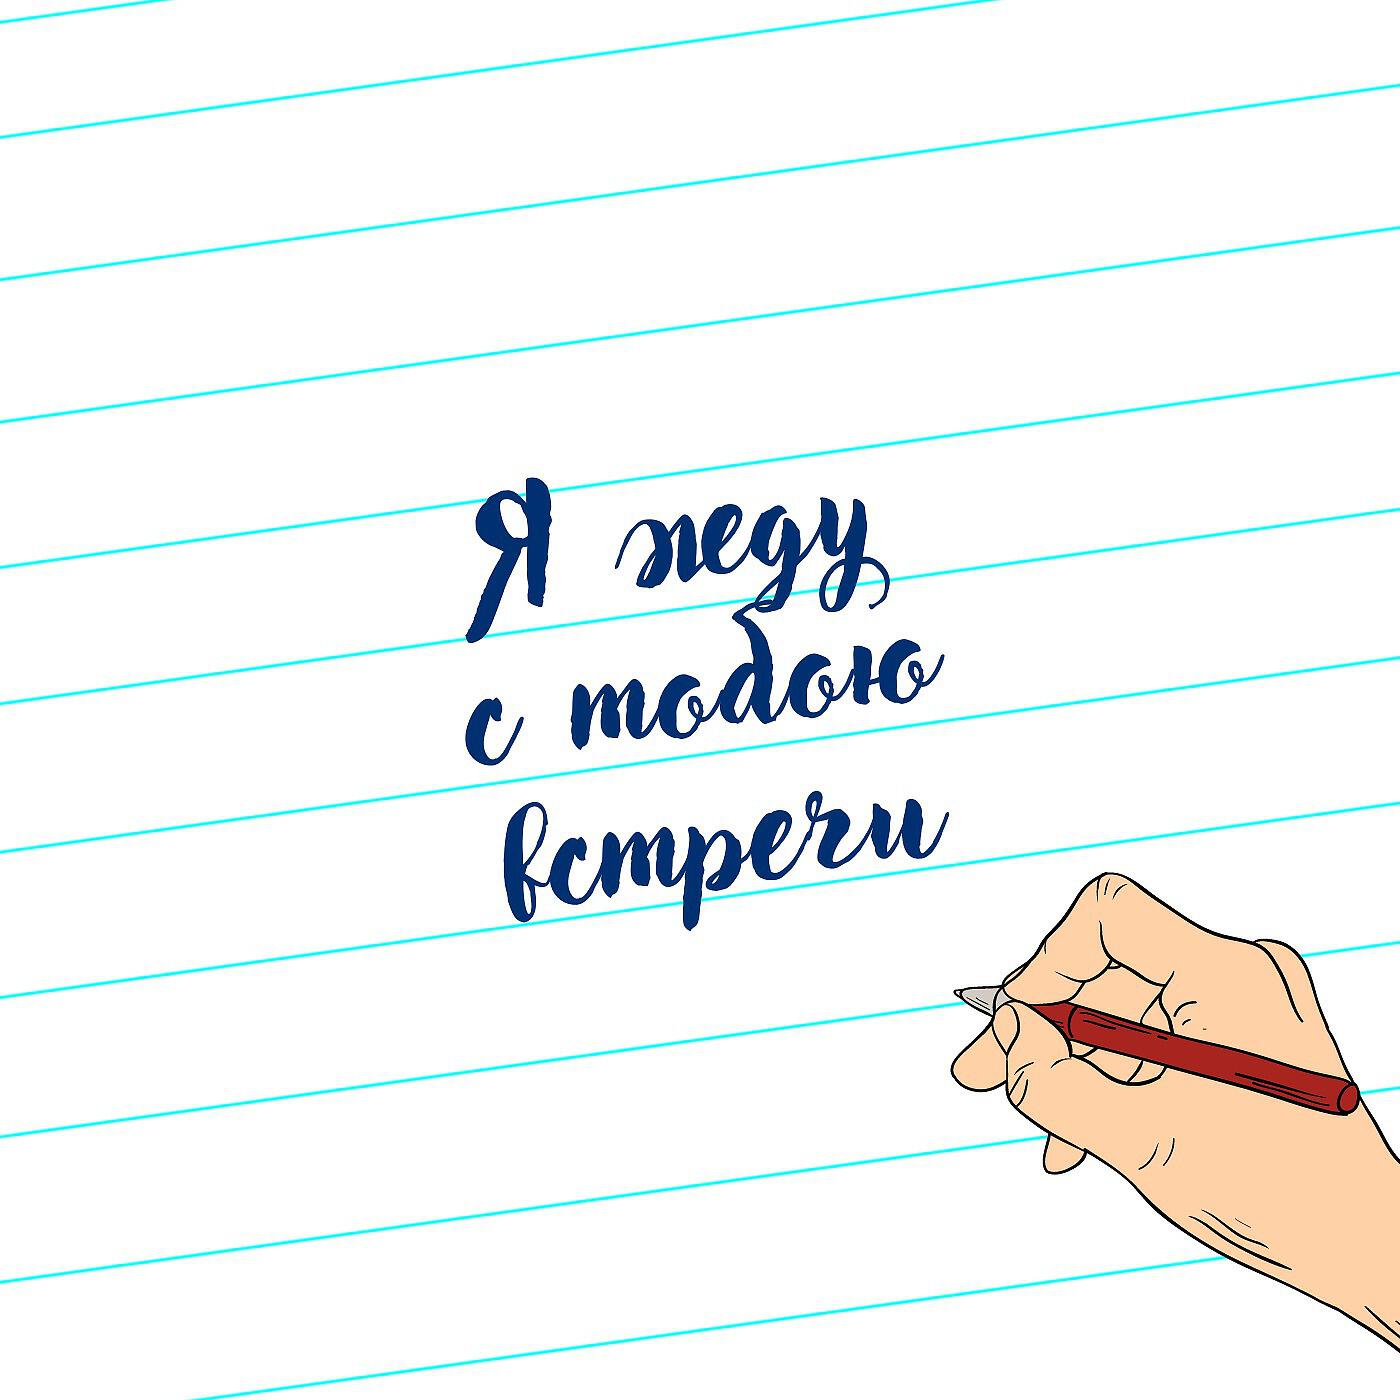 Я жеду
с тобою
встречи